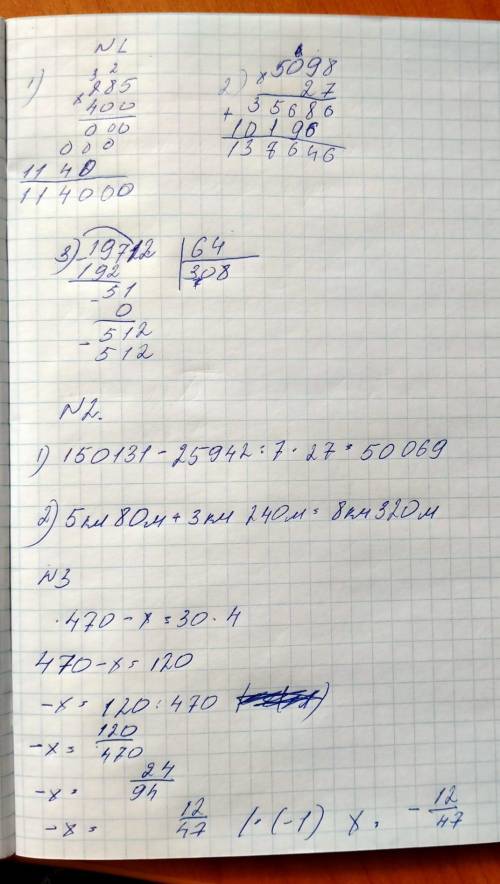 N1
1) 3 2
×285
400
000
000
1140
114000
2) 6
×5098
27
+35686
10196
137646
3) -19712 | 64
192 | 308
-51
0
-512
512
N2.
1) 150131 - 25942 : 7 · 27 = 50069
2) 5км 80м + 3км 240м = 8км 320м
N3
470 - x = 30 · 4
470 - x = 120
-x = 120 : 470
-x = 120/470
-x = 24/94
-x = 12/47 | · (-1) x = -12/47